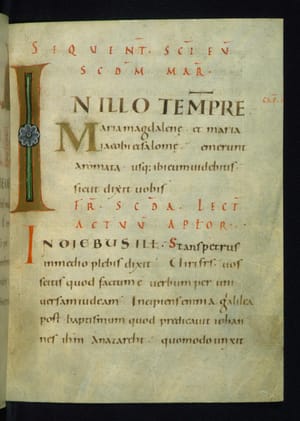 SEQUENT. SCI EV
SCDM MAR.
IN ILLO TEMPRE
Maria magdalenę et maria
iacobi et salomę emerunt
aromata usq: ibi eum uidebitis
sicut dixit uobis
FR. SCDA. LECT
ACTVV APTOR.
IN DIEBUS ILL. Stans petrus
in medio plebis dixit Uos
scitis quod factum ē uerbum per uni
uersam iudeam Incipiens enim a galilea
post baptismum quod predicauit iohan
nes ihm a nazareth quomodo unxit